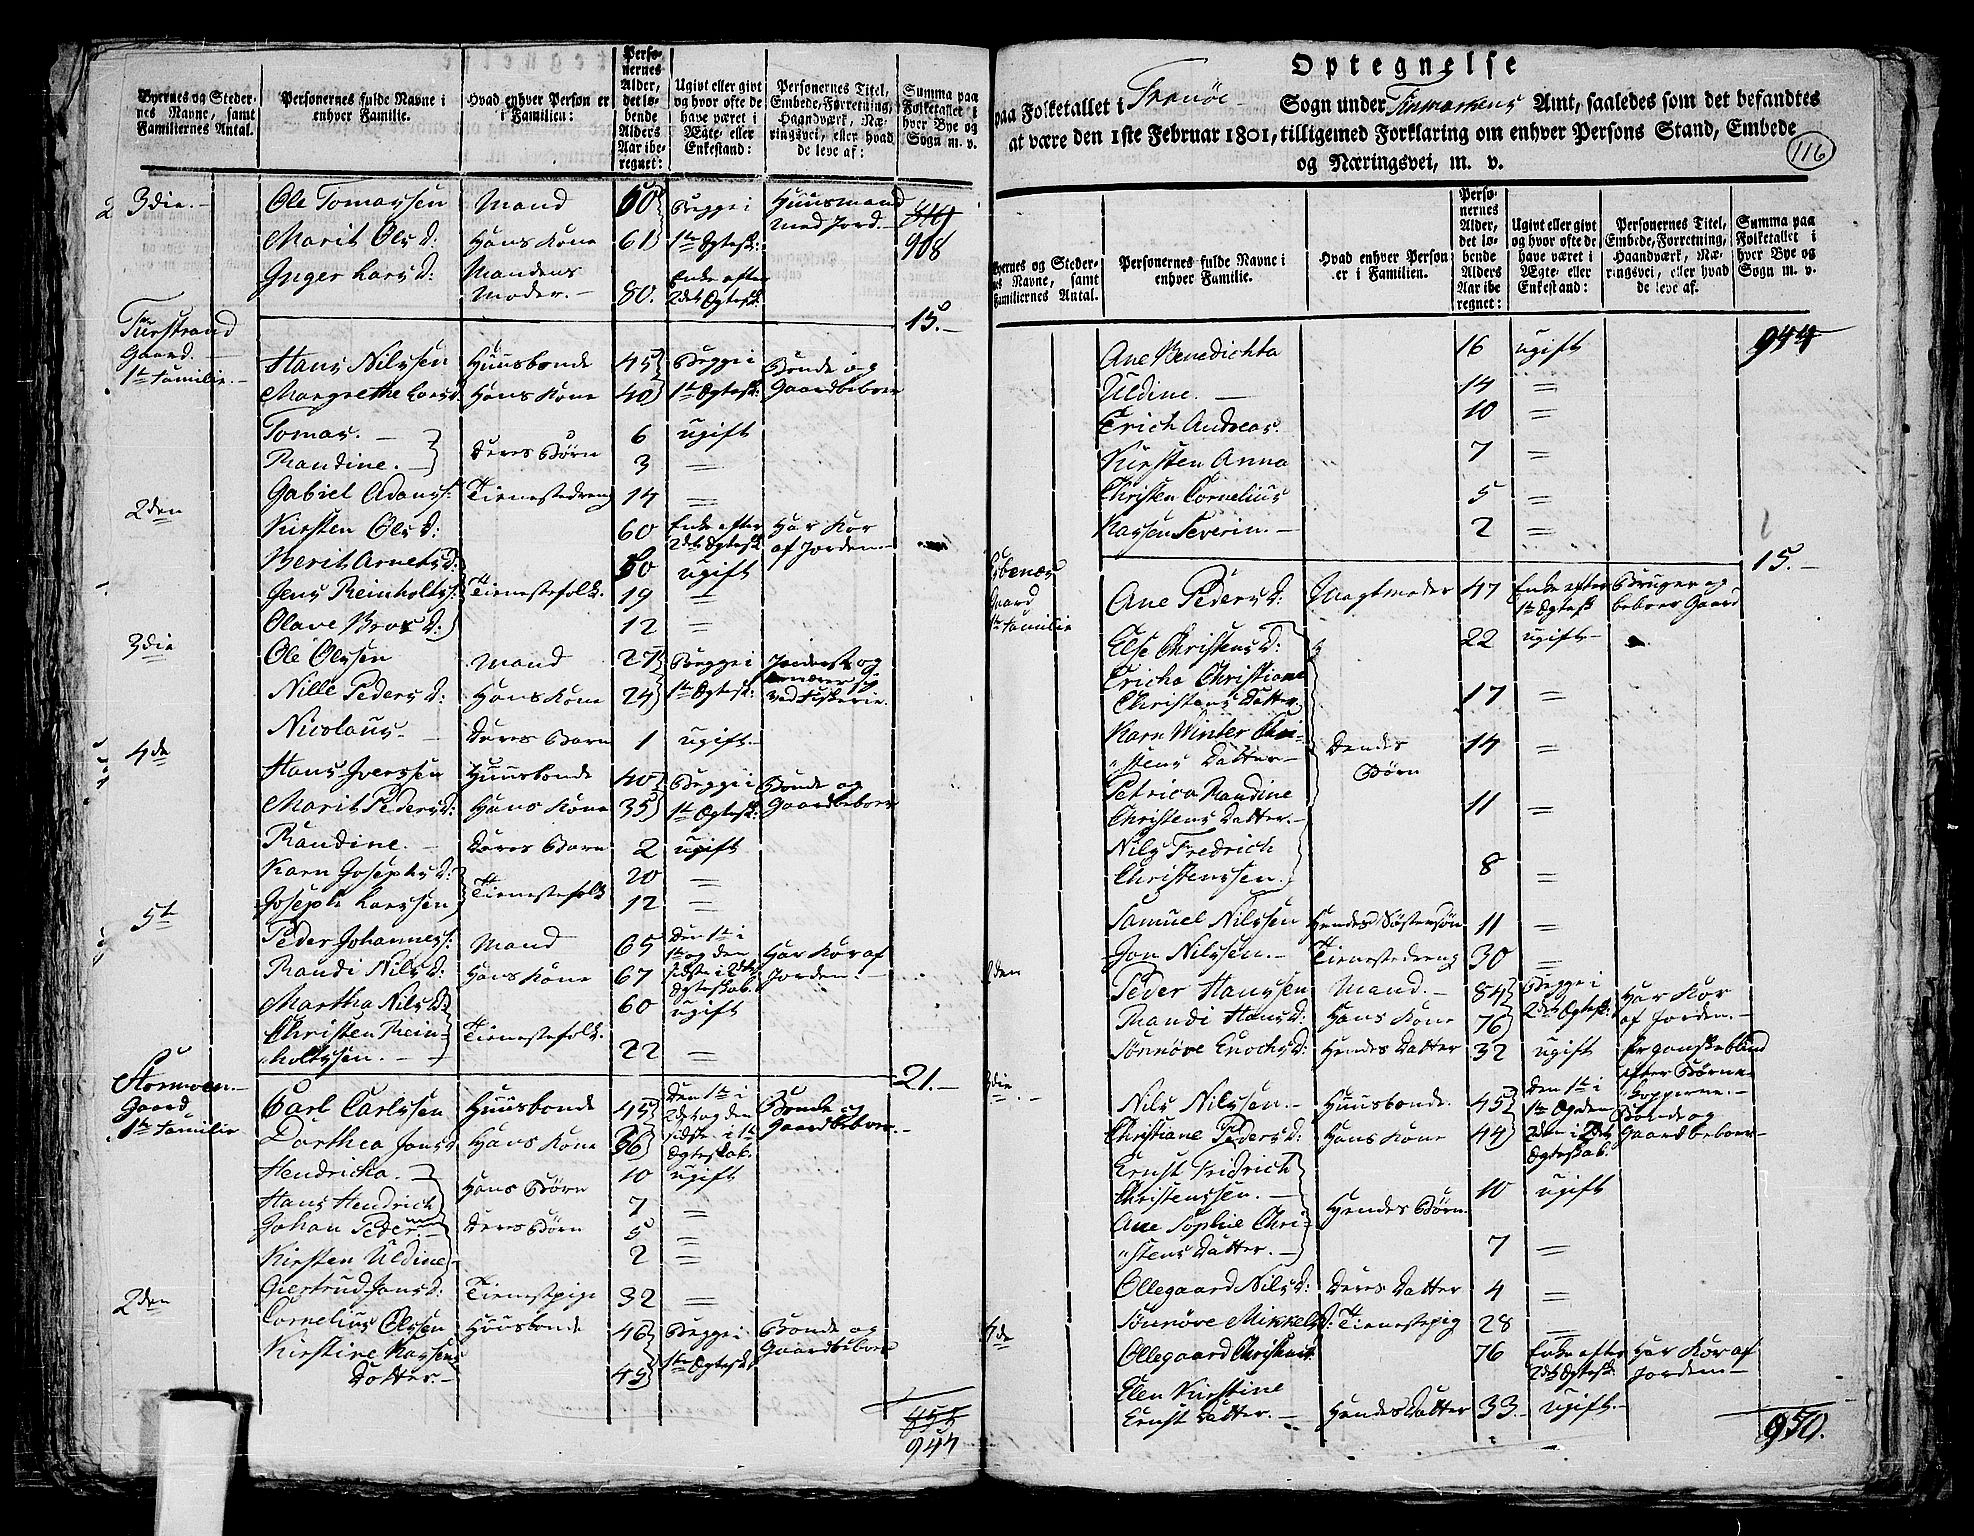 Byernes og Steder-
nes Navne, samt
Familiernes Antal.
Personernes fulde Navne i
enhver Familie.
Hvad enhver Person er
i Familien:
Perso-
nernes
Alder,
det lø-
bende
Alders
Aar ibe-
regnet:
Ugivt eller givt
og hvor ofte de
have været i
Ægte- eller
Enkestand:
Personernes Titel,
Embede, Forretning,
Haandværk, Næ-
ringsvei, eller hvad
de leve af:
Summa paa
Folketallet i
hver Bye og
Sogn m. v.
2 3die. Ole Tomassen Mand 60 Begge i Huusmand
med Jord.
908
Marit Olsd: Hans Kone 61 1te Ægtesk:
Inger Larsd: Mandens Enke efter
Moder. 80. 2det Ægtesk.
15.
Gaard.
1te Familie. Hans Nilssen Huusbonde 45 Begge i Bonde og
Margrethe Larsd: Hans Kone 40 1te Ægtesk: Gaardbeboer
Tomas. 6 ugift
Deres Børn
Randine. 3 =
Gabiel Adams: Tienestedreng 14 =
2den Kirsten Olsd: 60 Enke efter Har Kor
2det Ægtesk. af Jorden
Berit Arnetsd: 50 ugift
Jens Reinholts: Tienestefolk. 19 =
Olave Brosd: 12 =
3die Ole Olssen Mand 27 Begge i
Nille Pedersd: Hans Kone 24 1te Ægtesk:
ved Fiskerie.
Nicolaus. Deres Barn 1 ugift.
4de Hans Iverssen Huusbonde 40 Begge i Bonde og
Marit Pedersd: Hans Kone 35 1te Ægtesk: Gaardbeboer
Randine. Deres Barn 2 ugift
Karn Josephsd: 20 =
Tienestefolk
Joseph Larssen 12 =
5te Peder Johanness: Mand 65 Den 1te i
1te og den Har Kor af
Randi Nilsd: Hans Kone 67 sidste i 2det Jorden.
Ægteskab.
Martha Nilsd: 60 ugift
Christen Rein- Tienestefolk.
holtssen. 22 =
21.
Stormoen.
Gaard
1te Familie Carl Carlssen Huusbonde 45 Den 1te i Bonde og
2det og den Gaardbeboer.
Dorthea Jonsd: Hans Kone 36 sidste i 1te
Ægteskab.
Hendricka. 10 ugift
Hans Børn
Hans Hendrich 7 =
Johan Peder Deres Børn 5 =
Kirsten Uldine 2 =
Giertrud Jonsd: Tienestepige 32 =
2den Cornelius Olssen Huusbonde 46 Begge i Bonde og
Gaardbeboer
Kirstine Kassens
Datter. 45 1te Ægtesk:
944
Optegnelse
paa Folketallet i Tranöe Sogn under Finmarkens Amt, saaledes som det befandtes
at være den 1ste Februar 1801, tilligemed Forklaring om enhver Persons Stand, Embede
og Næringsvei, m. v.
116
Byernes og Steder-
nes Navne, samt
Familiernes Antal.
Personernes fulde Navne i
enhver Familie.
Hvad enhver Person
er i Familien.
Perso-
nernes
Alder,
det lø-
bende
Alders
Aar ibe-
regnet:
Ugivt eller givt
og hvor ofte de
have været i
Ægte- eller
Enkestand:
Personernes Titel,
Embede, Forretning,
Haandværk, Næ-
ringsvei, eller hvad
de leve af.
Summa paa
Folketallet i
hver Bye og
Sogn m. v.
Ane Benedichta 16 ugift 944
Uldine. 14 =
Erich Andreas. 10 =
Kirsten Anna 7 =
Christen Cornelius 5 =
Kassen Severin. 2 =
15.
Gaard
1te Familie Ane Pedersd: Madmoder 47 Enke efter Bruger og
1te Ægtesk beboer Gaard
Else Christensd: 22 ugift
Ericha Christiane
Christens Datter. 17 =
Karn Winter Chri-
stens Datter 14 =
Dendes
Børn
Petrica Randine
Christens Datter. 11 =
Nils Fredrich
Christenssen. 8 =
Samuel Nilssen Hendes Søstersøn 11 =
Jon Nilssen. Tienestedreng 30 =
2den Peder Hanssen Mand. 84 Begge i Har Kor
Randi Hansd: Hans Kone 76 2det Ægtesk: af Jorden.
Sönnöve Enochsd: Hendes Datter 32 ugift Er ganske blind
efter Børne-
kopperne.
3die. Nils Nilssen. Huusbonde. 45 Den 1te i
1te Og den Bonde og
Christiane Pedersd: Hans Kone 44 Gaardbeboer
Ægteskab.
Ernst Fridrich
Christenssen. 10 ugift
Hendes Børn
Ane Sophie Chri-
stens Datter. 7 =
Ollegaard Nilsd: Deres Datter 4 =
Sönnöve Mikkelsd: Tienestepig 28 =
4de Ollegaard Christensd. 76 Enke efter Har Kor af
2det Ægtesk. Jorden
Elen Kirstine
Ernst Datter. Hendes Datter 33 ugift.
950.